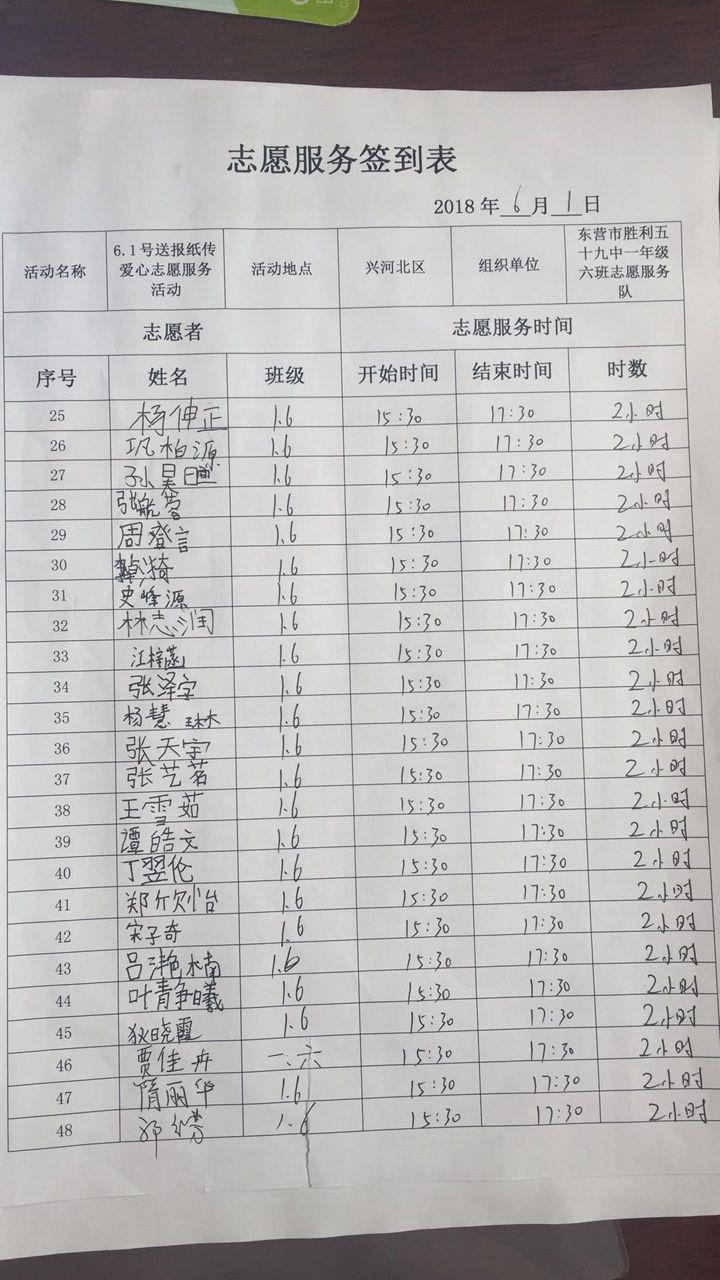 志愿服务签到表
2018 年 6 月 1 日
活动名称 6.1号送报纸传爱心志愿服务活动 活动地点 兴河北区 组织单位 东营市胜利五十九中一年级六班志愿服务队
志愿者 志愿服务时间
序号 姓名 班级 开始时间 结束时间 时数
25 杨伸正 1.6 15:30 17:30 2小时
26 巩柏源 1.6 15:30 17:30 2小时
27 孙昊 1.6 15:30 17:30 2小时
28 张航 1.6 15:30 17:30 2小时
29 周登言 1.6 15:30 17:30 2小时
30 1.6 15:30 17:30 2小时
31 史峰源 1.6 15:30 17:30 2小时
32 林志润 1.6 15:30 17:30 2小时
33 江梓菡 1.6 15:30 17:30 2小时
34 张泽宇 1.6 15:30 17:30 2小时
35 杨慧琳 1.6 15:30 17:30 2小时
36 张天宇 1.6 15:30 17:30 2小时
37 张艺茗 1.6 15:30 17:30 2小时
38 王雪茹 1.6 15:30 17:30 2小时
39 谭皓文 1.6 15:30 17:30 2小时
40 丁翌伦 1.6 15:30 17:30 2小时
41 郑欣怡 1.6 15:30 17:30 2小时
42 宋子奇 1.6 15:30 17:30 2小时
43 吕滟楠 1.6 15:30 17:30 2小时
44 叶青争曦 1.6 15:30 17:30 2小时
45 狄晓霞 1.6 15:30 17:30 2小时
46 贾佳卉 一、六 15:30 17:30 2小时
47 隋丽华 1.6 15:30 17:30 2小时
48 1.6 15:30 17:30 2小时